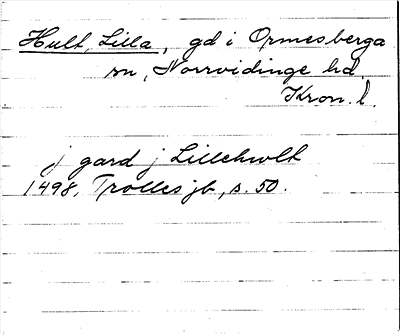 Hult, Lilla, gd i Ormesberga
sn, Norrvidinge hd,
Kron. l.
j gard j Lillehwlt
1498, Trolles jb, s. 50.